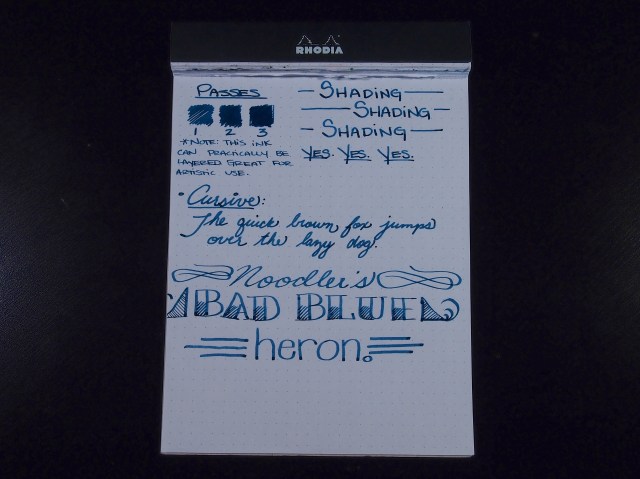 RHODIA
PASSES
1 2 3
*NOTE: THIS INK
CAN PRACTICALLY BE
LAYERED GREAT FOR
ARTISTIC USE.
— SHADING —
— SHADING —
— SHADING —
YES. YES. YES.
• Cursive:
The quick brown fox jumps
over the lazy dog.
Noodler's
BAD BLUE
heron.